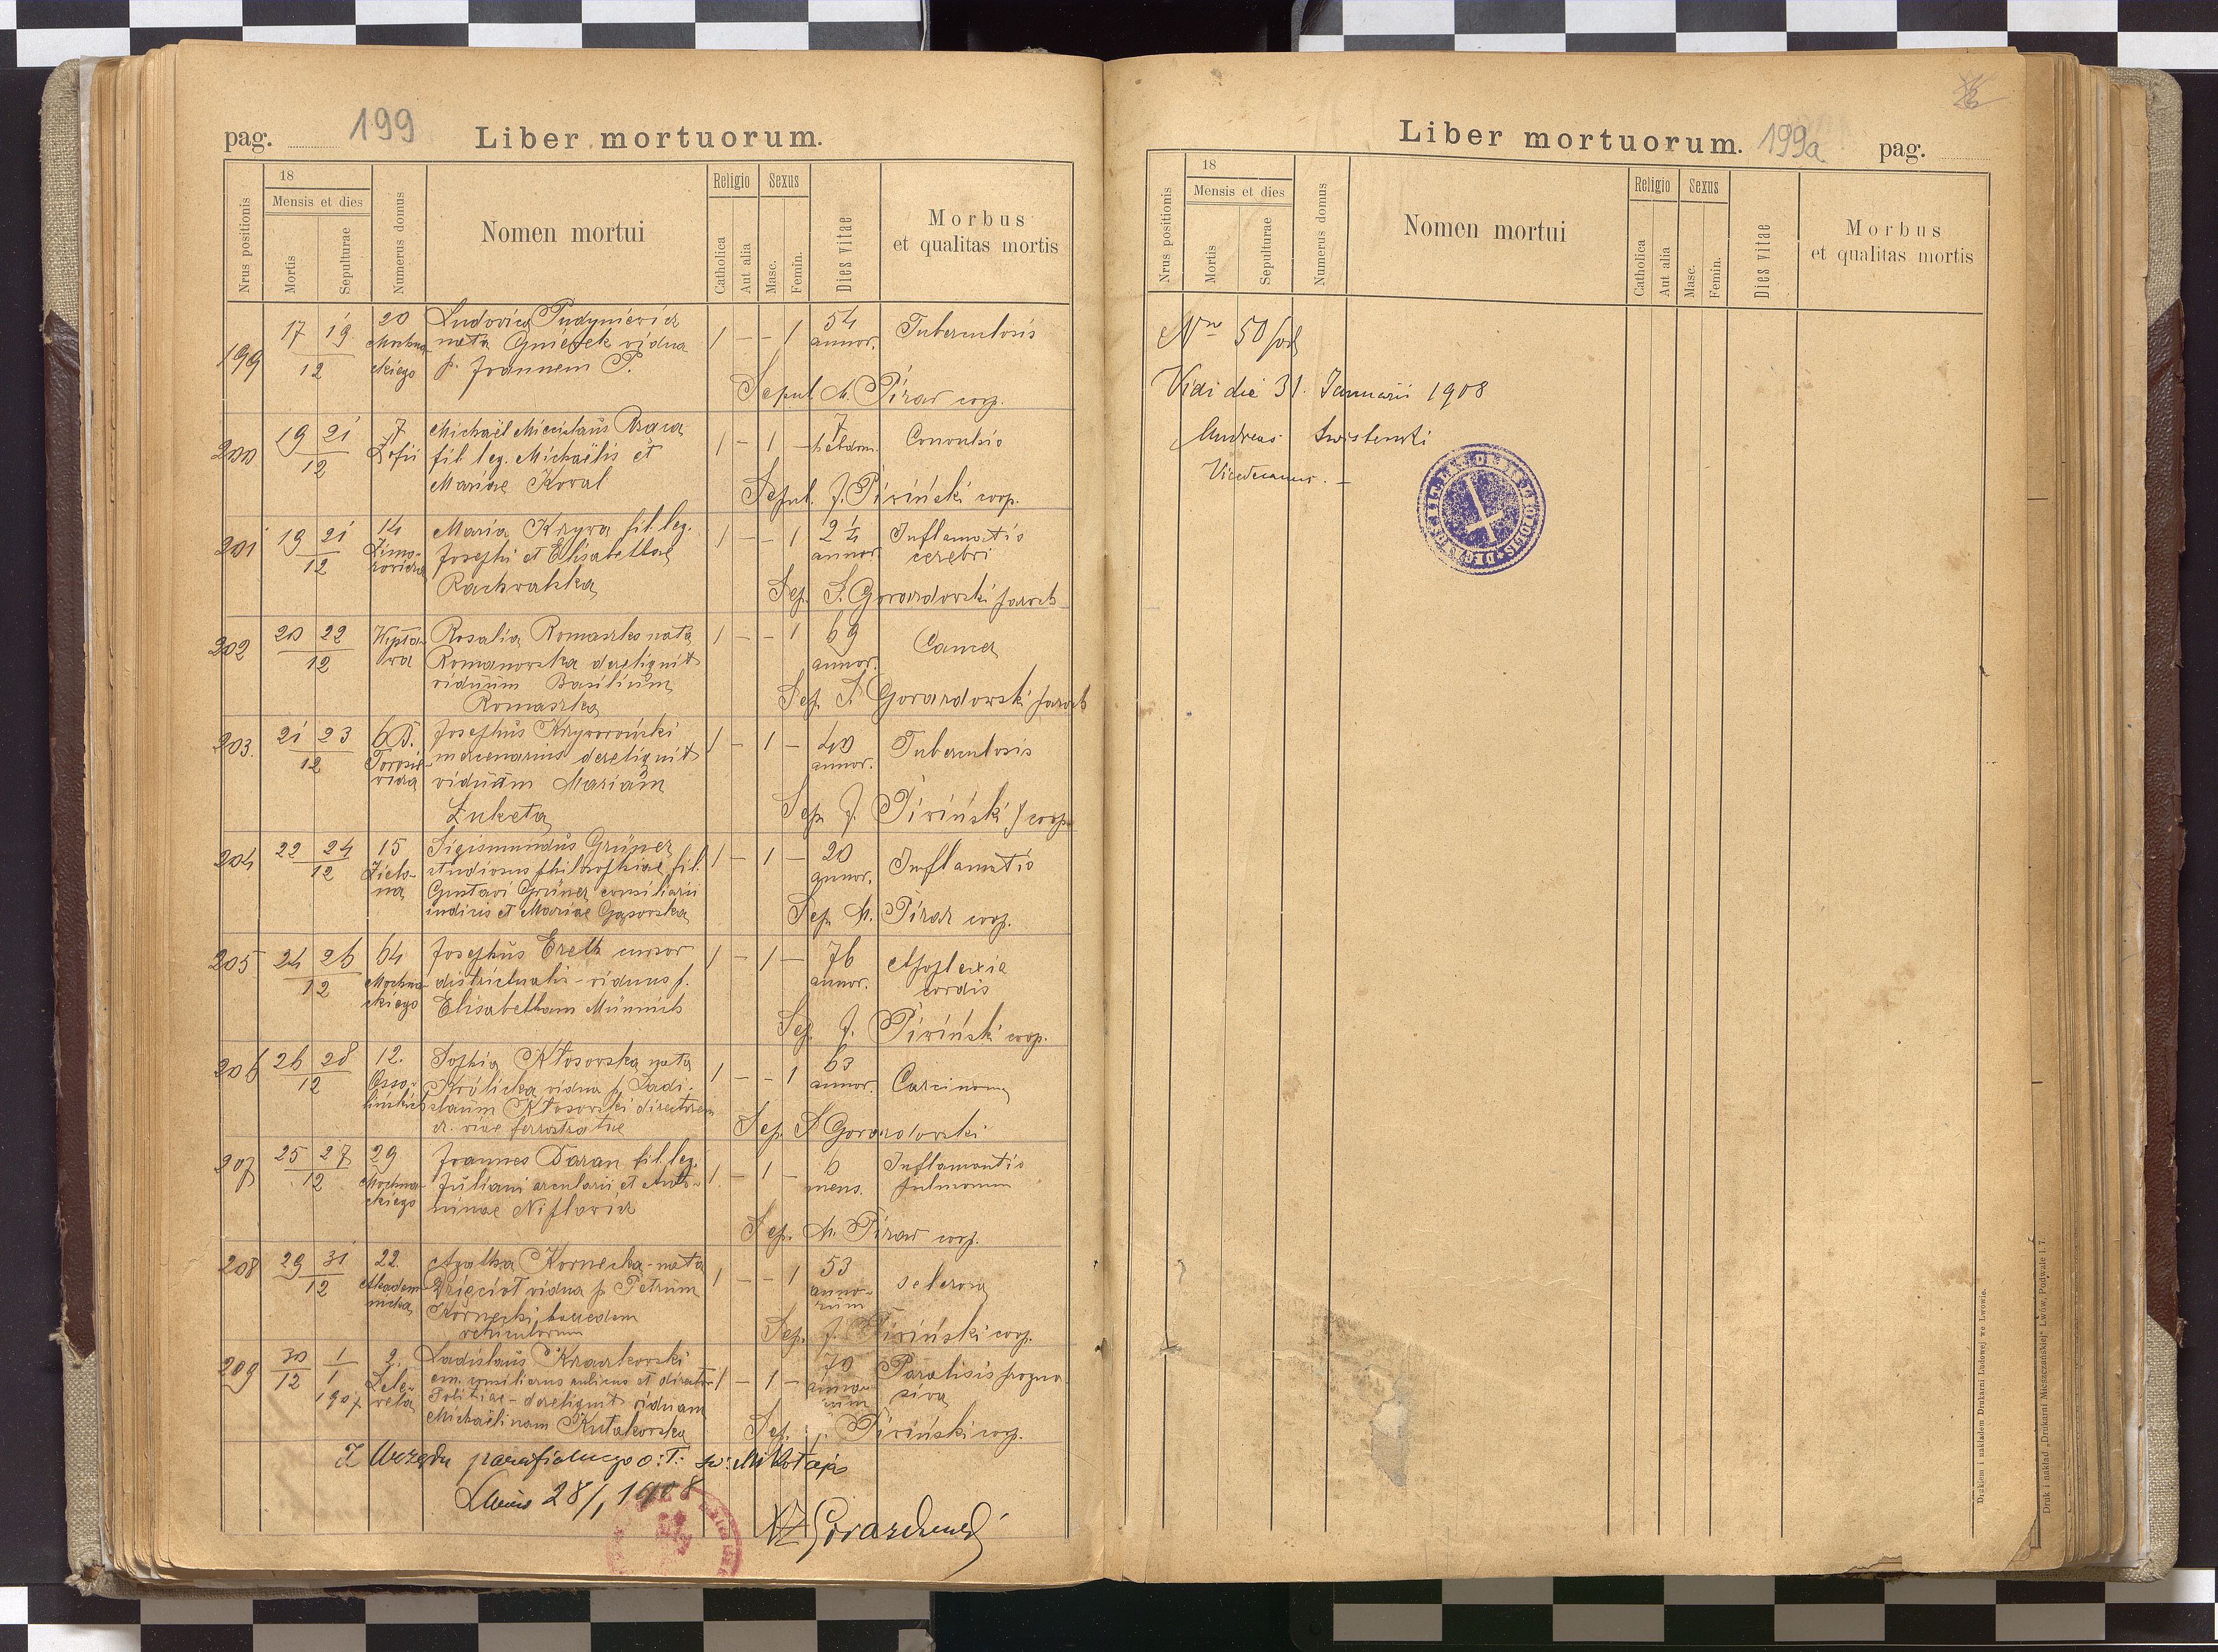 pag. 199 Liber mortuorum.
Nrus positionis
18
Mensis et dies
Mortis
Sepulturae
Numerus domus
Nomen mortui
Religio
Catholica
Aut alia
Sexus
Masc.
Femin.
Dies vitae
Morbus
et qualitas mortis
199 17 19 12 20 Mochnackiego
Ludovica
nata widua
p. Joannem P.
1 - - 1 54 annor. Tuberculosis
Sepul. M. coop.
200 19 21 12 7 Zofii
Michaël Miecislaus
fil. leg. Michaëlis et
Mariae Koval
1 - 1 - 7 hebdom. Convulsio
Sepul. J. Piriński coop.
201 19 21 12 14 Zimorowicza
Maria Krywa fil. leg.
Josephi et Elisabethae
Rachwalska
1 - - 1 2½ annor. Inflamatio
cerebri
Sep. Z. Gorazdowski paroch
202 20 22 12
Rosalia Romaszko nata
Romanowska dereliquit
viduum Basilium
Romaszka
1 - - 1 69 annor. Cancer
Sep. Z. Gorazdowski paroch
203. 21 23 12 6B. Torosiewicza
Josephus
mercenarius dereliquit
viduam Mariam
Zuketa
1 - 1 - 40 annor. Tuberculosis
Sep. J. Piriński coop.
204 22 24 12 15 Zielona
Sigismundus Grüner
studiosus philosophiae fil.
Gustavi Grüner consiliarii
iudicis et Mariae Gąsowska
1 - 1 - 20 annor. Inflamatio
Sep. M. coop.
205 24 26 12 64 Mochnackiego
Josephus Ereth cursor
districtualis - viduus p.
Elisabetham Münnich
1 - 1 - 76 annor. Apoplexia
cordis
Sep. J. Piriński coop.
206 26 28 12 12. Ossolińskich
Sophia Kłosowska nata
Królicka vidua p. Ladislaum
Kłosowski directorem
viae ferrostratae
1 - - 1 63 annor. Carcinoma
Sep. Z. Gorazdowski
207 25 27 12 29 Mochnackiego
Joannes Baran fil. leg.
Juliani arcularii et Antoninae
1 - 1 - 6 mens. Inflamantio
pulmonum
Sep. M. coop.
208 29 31 12 22 Akademicka
Agatha Kornecka - nata
Dzięcioł vidua p. Petrum
Kornecki
1 - - 1 53 annorum sclerosa
Sep. J. Piriński coop.
209 30 12 1 1 1907 2. Zelewela
Ladislaus Kraczkowski
em. consiliarius aulicus et director
Politiae - dereliquit viduam
Michaëlinam Kutakowska
1 - 1 - 70 annorum Paralisis progresiva
Sep. J. Piriński coop.
Z Urzędu parafialnego o: ł: św: Mikołaja
Lwów 28/1 1908
XZ Gorazdowski
Liber mortuorum. 199a pag.
Nrus positionis
18
Mensis et dies
Mortis
Sepulturae
Numerus domus
Nomen mortui
Religio
Catholica
Aut alia
Sexus
Masc.
Femin.
Dies vitae
Morbus
et qualitas mortis
Nro 50/
Vidi die 31. Januarii 1908
Andreas
Vicedecanus. -
Drukiem i nakładem Drukarni Ludowej we Lwowie.
Druk i nakład „Drukarni Mieszczańskiej“ Lwów, Podwale l. 7.